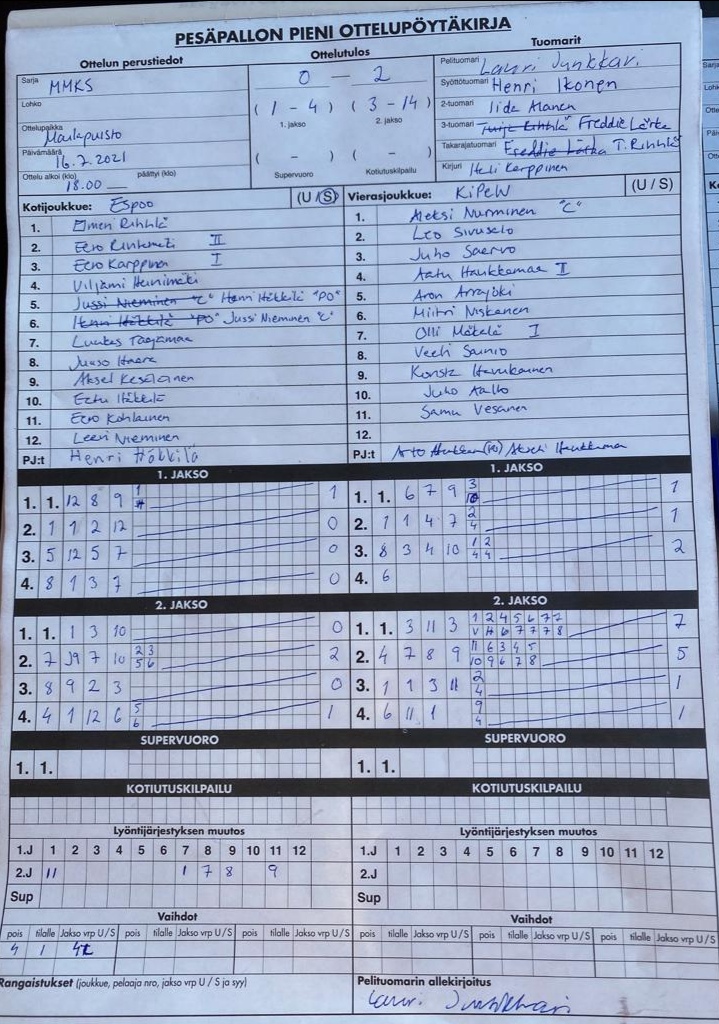 PESÄPALLON PIENI OTTELUPÖYTÄKIRJA
Ottelun perustiedot
Ottelutulos
Tuomarit
Sarja MMKS
0 — 2
Pelituomari Lauri Junkkari
Lohko
(1 – 4) (3 – 14)
Syöttötuomari Henri Ikonen
1. jakso 2. jakso
2-tuomari Iida Alanen
Ottelupaikka Mailapuisto
3-tuomari Freddie Lätkä
Päivämäärä 16.7.2021
( – ) ( – )
Takarajatuomari T. Riihelä
Ottelu alkoi (klo) 18.00 päättyi (klo)
Supervuoro Kotiutuskilpailu
Kirjuri Heli Karppinen
Kotijoukkue: Espoo (U / S)
Vierasjoukkue: KiPeW (U / S)
1. Elmeri
2. Eero II
3. Eero Karppinen I
4. Viljami Heinimäki
5. Jussi Nieminen "C" Henri Häkkilä "PO"
6. Henri Häkkilä "PO" Jussi Nieminen "C"
7. Luukas
8. Juuso
9. Aksel Kesäläinen
10. Eetu Häkkilä
11. Eero Kohlainen
12. Leevi Nieminen
PJ:t Henri Häkkilä
1. Aleksi Nurminen "C"
2. Leo Sivusalo
3. Juho Saarvo
4. Aatu Haukkamaa II
5. Aron Arrajoki
6. Miitri Niskanen
7. Olli Mäkelä I
8. Veeti Sainio
9. Konsta
10. Juho Aalto
11. Samu Vesanen
12.
PJ:t Arto (PO) Akseli Haukkamaa
1. JAKSO
1. 1. 12 8 9 1 1
2. 1 1 2 12 0
3. 5 12 5 7 0
4. 8 1 3 7 0
1. JAKSO
1. 1. 6 7 9 3 10 1
2. 1 1 4 7 2 4 1
3. 8 3 4 10 1 2 4 4 2
4. 6
2. JAKSO
1. 1. 1 3 10 0
2. 7 J9 7 10 2 3 5 6 2
3. 8 9 2 3 0
4. 4 1 12 6 5 6 1
2. JAKSO
1. 1. 3 11 3 1 2 4 5 6 7 7 V H 6 7 7 7 8 7
2. 4 7 8 9 11 6 3 4 5 10 9 6 7 8 5
3. 1 1 3 11 2 4 1
4. 6 11 1 9 4 1
SUPERVUORO
1. 1.
SUPERVUORO
1. 1.
KOTIUTUSKILPAILU
KOTIUTUSKILPAILU
Lyöntijärjestyksen muutos
1.J 1 2 3 4 5 6 7 8 9 10 11 12
2.J 11 1 7 8 9
Sup
Lyöntijärjestyksen muutos
1.J 1 2 3 4 5 6 7 8 9 10 11 12
2.J
Sup
Vaihdot
pois tilalle Jakso vrp U / S pois tilalle Jakso vrp U / S pois tilalle Jakso vrp U / S
4 1
Vaihdot
pois tilalle Jakso vrp U / S pois tilalle Jakso vrp U / S pois tilalle Jakso vrp U / S
Rangaistukset (joukkue, pelaaja nro, jakso vrp U / S ja syy)
Pelituomarin allekirjoitus
Lauri Junkkari